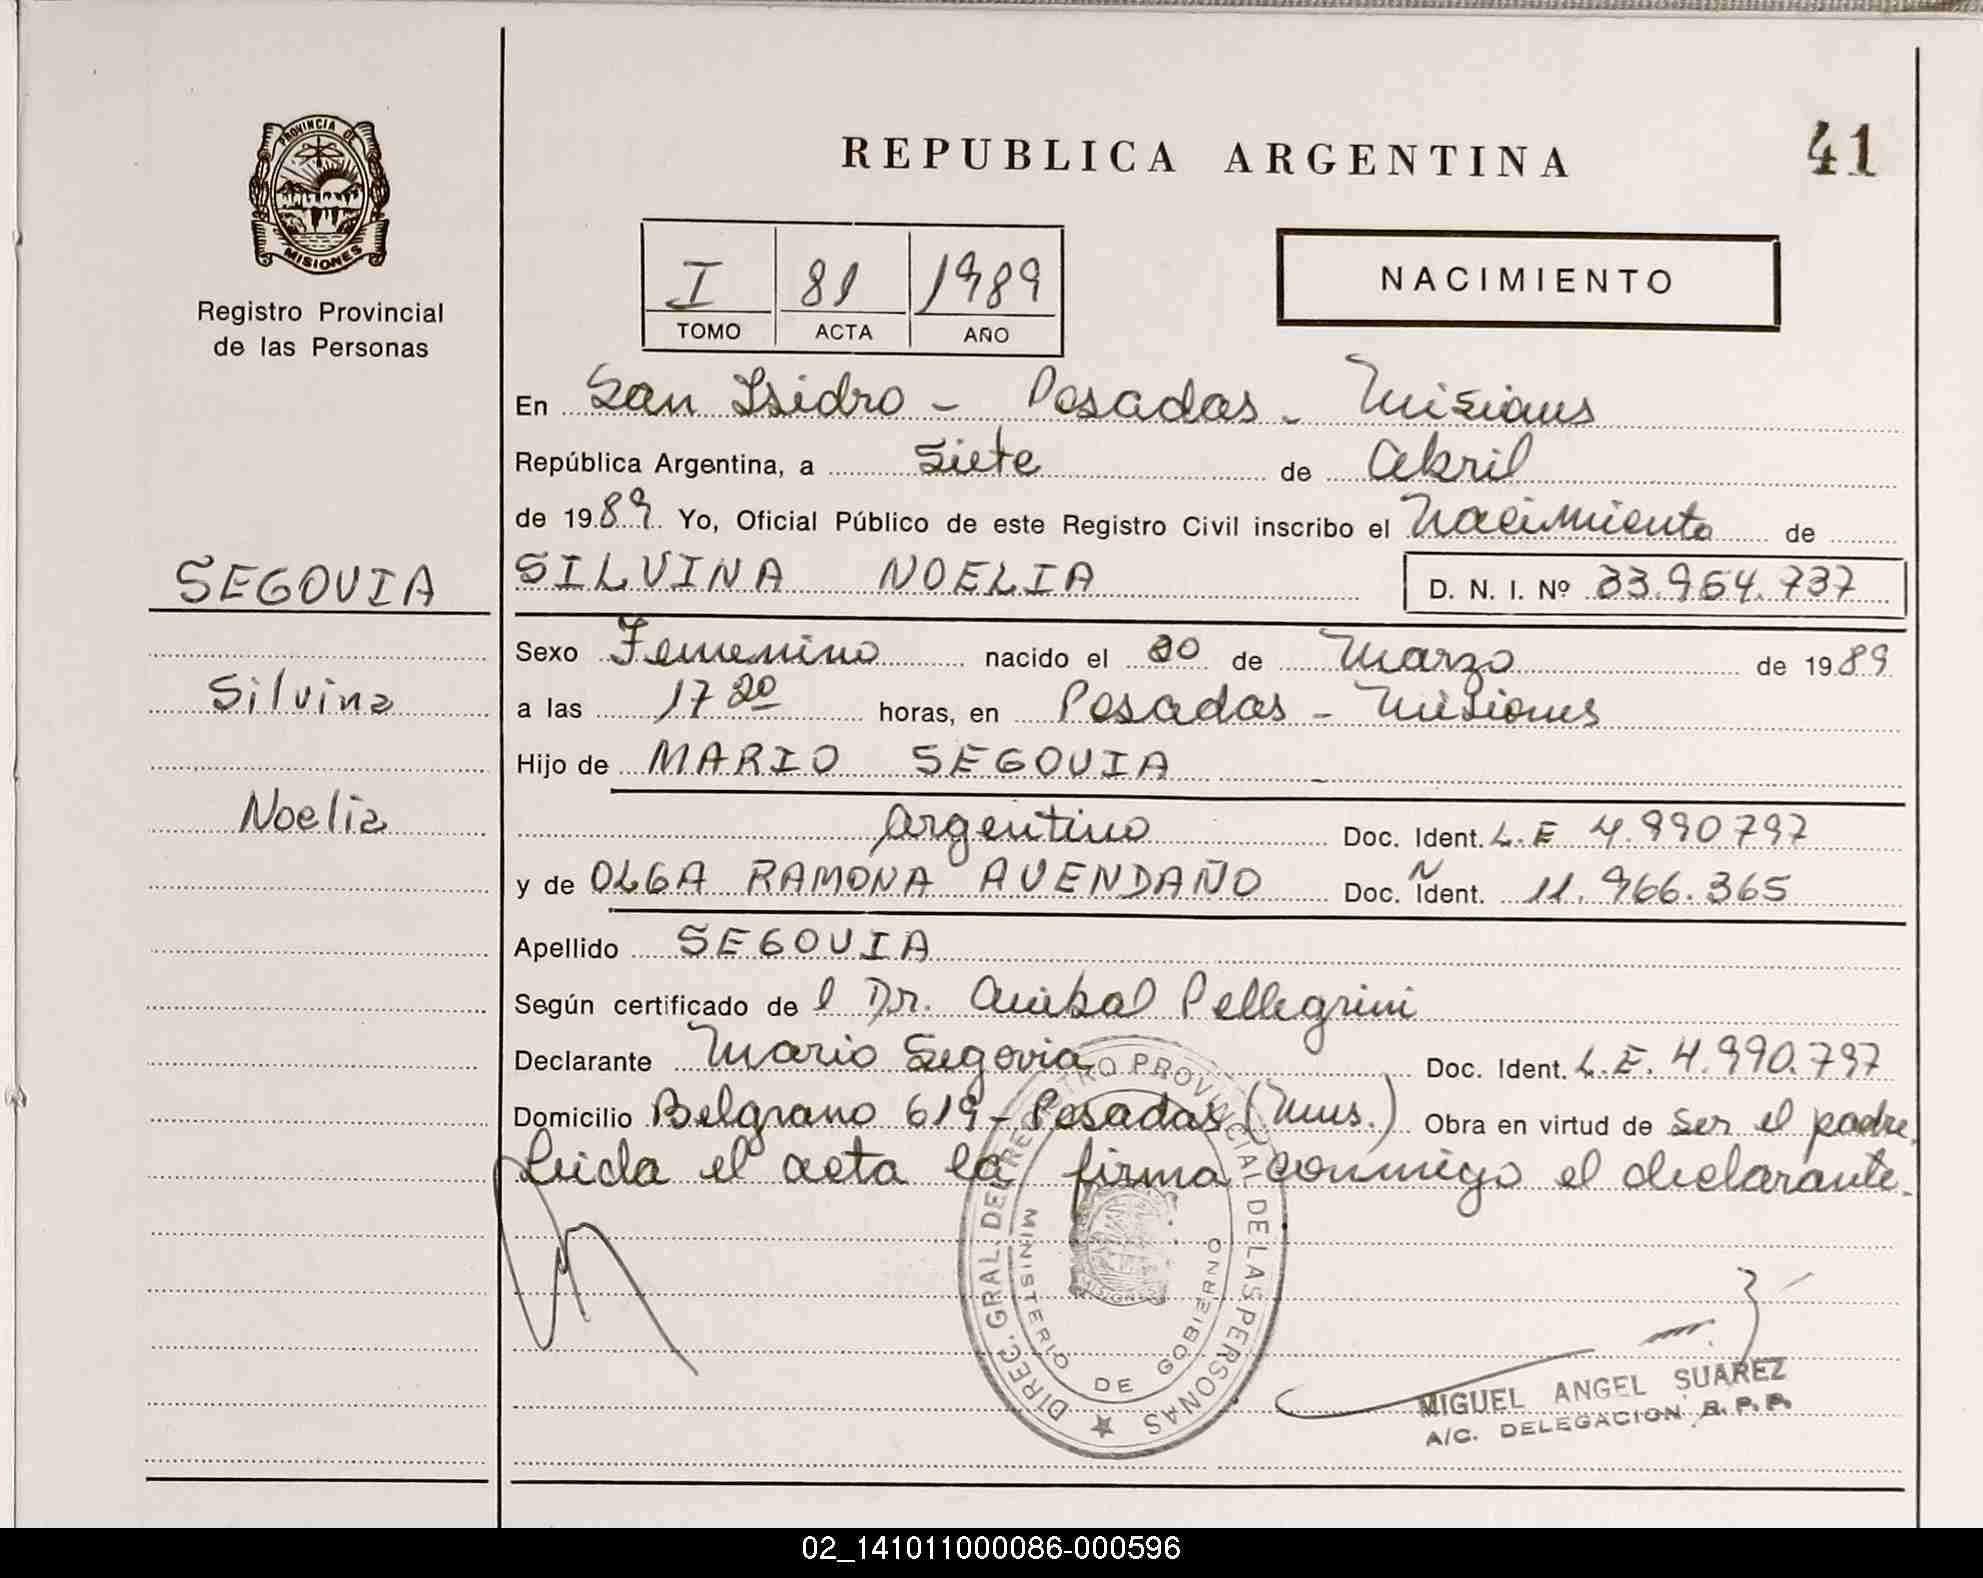 PROVINCIA DE
MISIONES
Registro Provincial
de las Personas
REPUBLICA ARGENTINA
41
I 81 1989
TOMO ACTA AÑO
NACIMIENTO
En San Isidro - Posadas - Misiones
República Argentina, a Siete de Abril
de 1989 Yo, Oficial Público de este Registro Civil inscribo el Nacimiento de
SEGOVIA
SILVINA NOELIA D. N. I. Nº 33.964.737
Sexo Femenino nacido el 20 de Marzo de 1989
Silvina
a las 17 20 horas, en Posadas - Misiones
Hijo de MARIO SEGOVIA -
Noelia
Argentino Doc. Ident. L.E 4.990797
y de OLGA RAMONA AVENDAÑO Doc. Ident. N 11.966.365
Apellido SEGOVIA
Según certificado de l Dr. Anibal Pellegrini
Declarante Mario Segovia Doc. Ident. L.E. 4.990.797
Domicilio Belgrano 619 - Posadas (Mnes.) Obra en virtud de ser el padre.
Leida el acta la firma conmigo el declarante.
DIREC. GRAL. DEL REGISTRO PROVINCIAL DE LAS PERSONAS
MINISTERIO DE GOBIERNO
MISIONES
MIGUEL ANGEL SUAREZ
A/C. DELEGACION R. P. P.
02_141011000086-000596